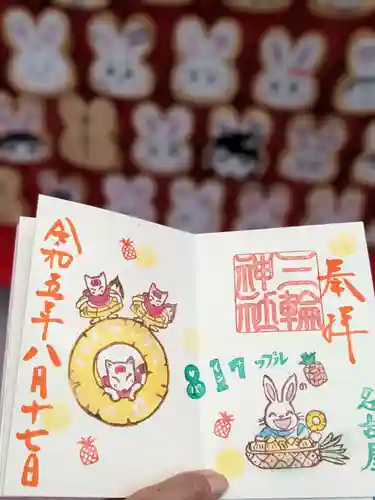 奉拝
三輪
神社
名古屋
817
ップル
令和五年八月十七日